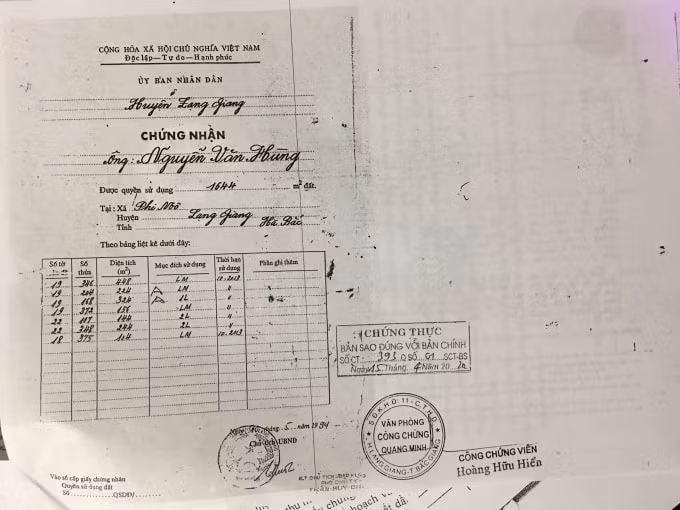 CỘNG HÒA XÃ HỘI CHỦ NGHĨA VIỆT NAM
Độc lập—Tự do—Hạnh phúc
ỦY BAN NHÂN DÂN
Huyện Lạng Giang
CHỨNG NHẬN
Ông: Nguyễn Văn Hùng
Được quyền sử dụng 1644 m² đất.
Tại: Xã Phi Mô
Huyện Lạng Giang
Tỉnh Hà Bắc
Theo bảng liệt kê dưới đây:
Số tờ Số thửa Diện tích (m²) Mục đích sử dụng Thời hạn sử dụng Phần ghi thêm
19 346 448 LM 10.2013
19 204 224 LM "
19 168 324 2L "
19 372 156 LM "
22 117 144 2L "
22 348 244 2L "
18 375 104 LM 10.2013
tháng 5 năm 1994
Chủ tịch UBND
CHỨNG THỰC
BẢN SAO ĐÚNG VỚI BẢN CHÍNH
SỐ CT: 393 Q SỐ 01 SCT-BS
Ngày 15 Tháng 4 Năm 20 20
S.Đ.K.H.Đ: 11-C.T.H.D
VĂN PHÒNG
CÔNG CHỨNG
QUANG MINH
H.LẠNG GIANG-T.BẮC GIANG
CÔNG CHỨNG VIÊN
Hoàng Hữu Hiển
Vào sổ cấp giấy chứng nhận
Quyền sử dụng đất
Số QSDĐ/